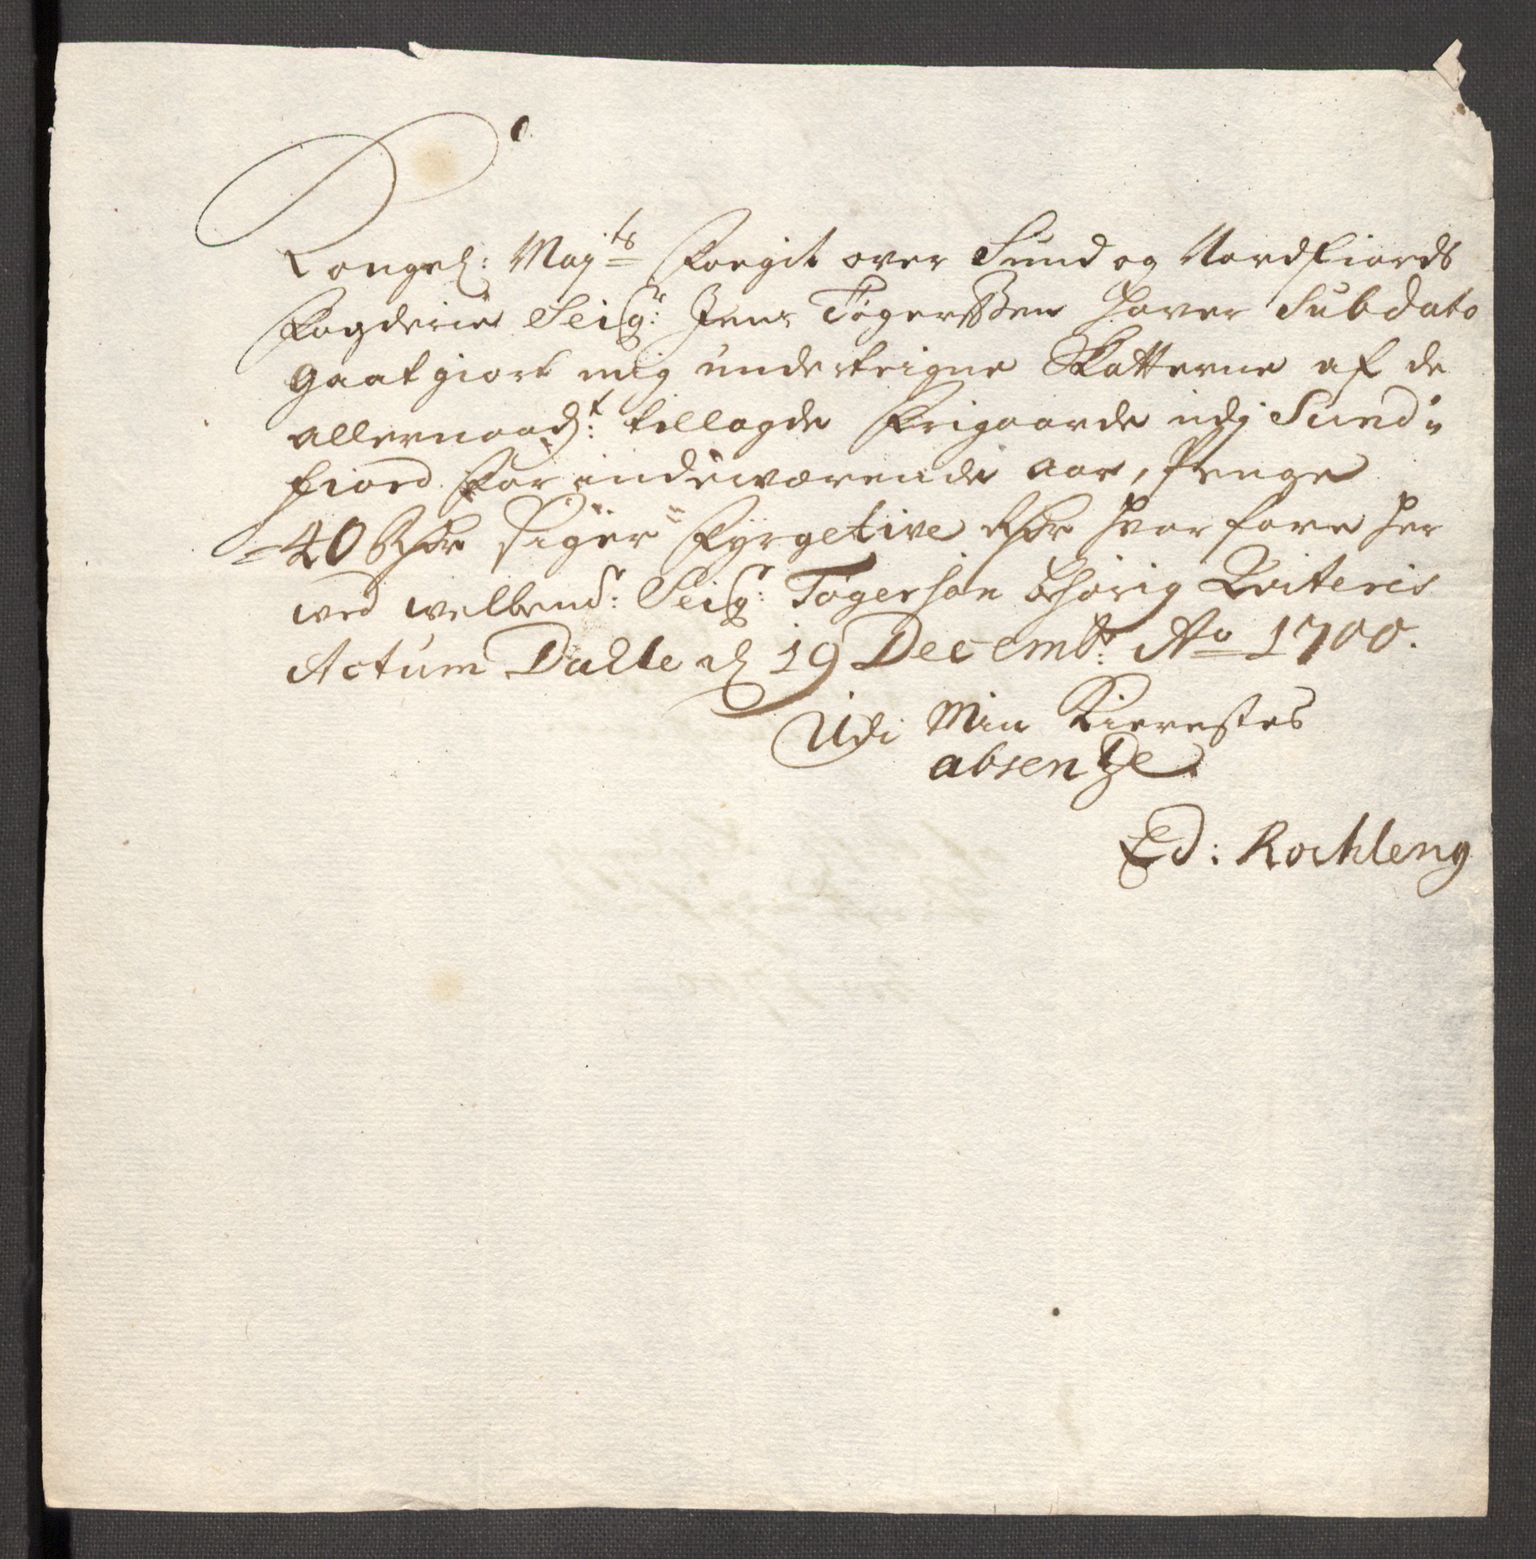 Kongel: Maj:ts Foegit over Sund og Nordfiords
Fogderie Seig:r Jens Tøgerssen haver Subdato
Gaatgiort mig underteigne Skatterne af de
allernaad:t tillagde Frigaarde udj Sund=
fiord for indeværende aar, penge
40 Rdr siger Fyrgetive Rdr hvor fore her
ved velbem:te Seig:r Tøgersøn behørig Qviteris
Actum Dalle d 19 Decemb:r Ao 1700.
Udi Min Kierestes
absentze.
Ed: Rochleng